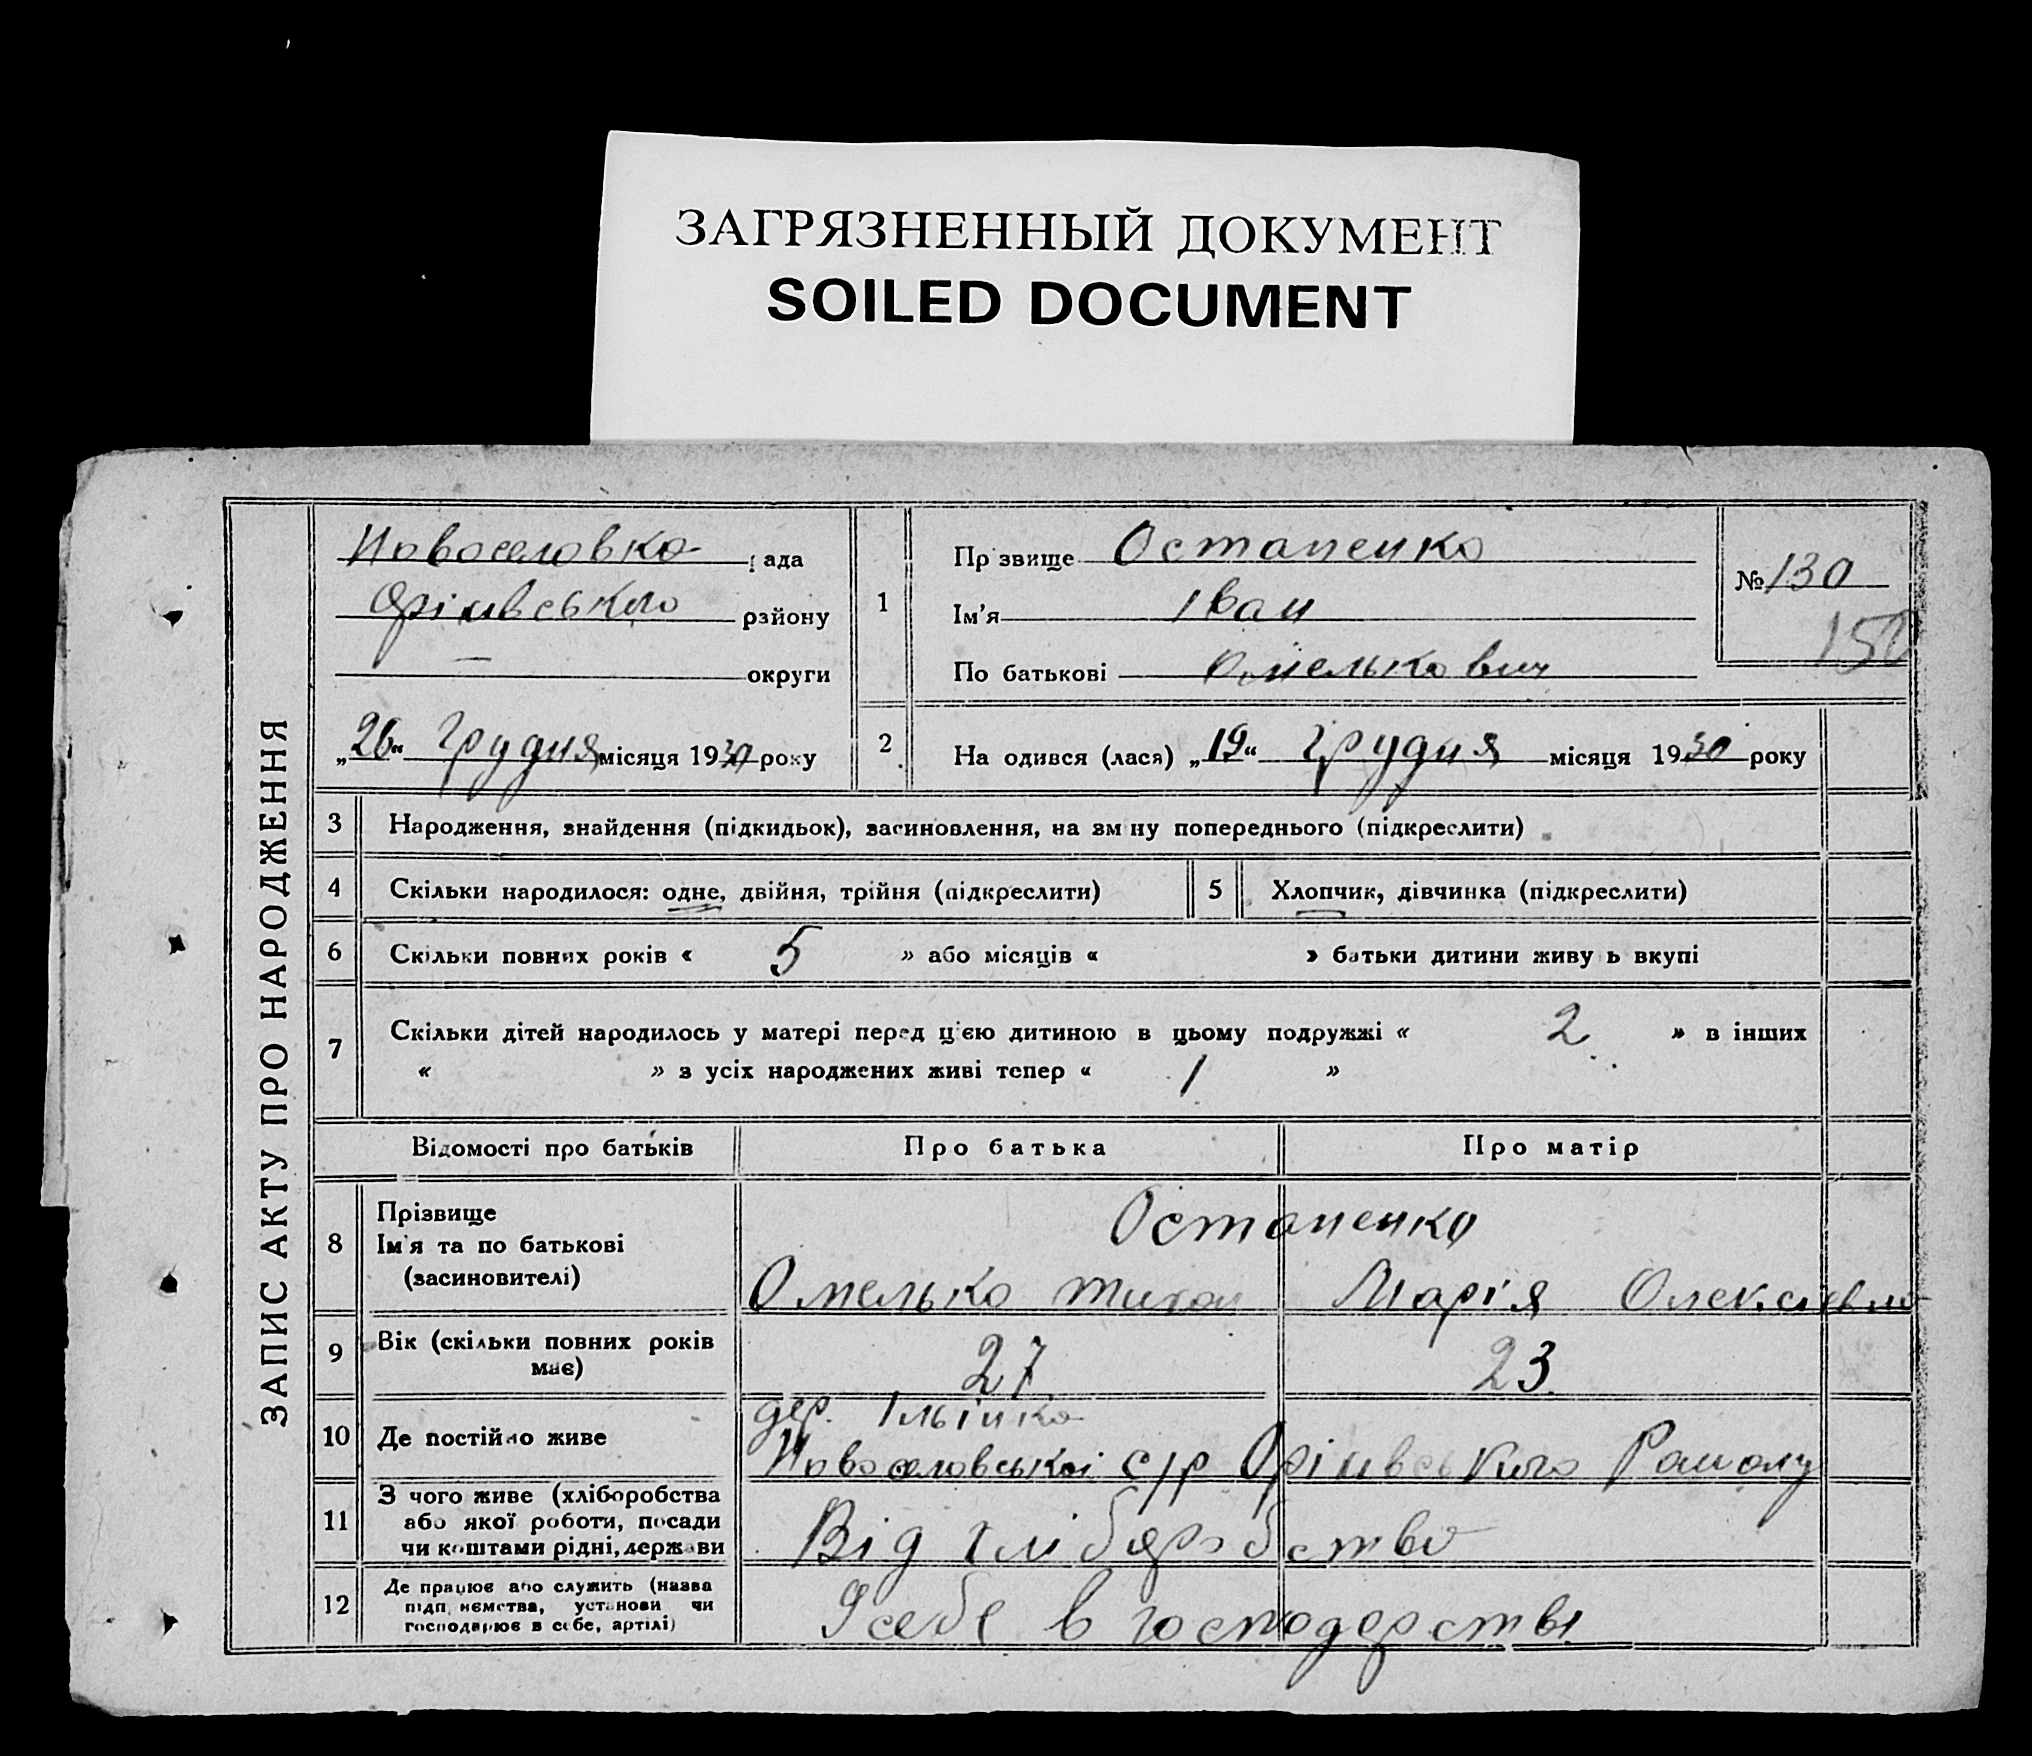 ЗАГРЯЗНЕННЫЙ ДОКУМЕНТ
SOILED DOCUMENT
ЗАПИС АКТУ ПРО НАРОДЖЕННЯ
Новоселовка рада
Орінівського району
— округи
„26“ Грудня місяця 1930 року
1
Прізвище Остапенко
Ім'я Іван
По батькові Омелькович
№ 130
150
2 На одився (лася) „19“ Грудня місяця 1930 року
3 Народження, знайдення (підкидьок), засиновлення, на зміну попереднього (підкреслити)
4 Скільки народилося: одне, двійня, трійня (підкреслити) 5 Хлопчик, дівчинка (підкреслити)
6 Скільки повних років « 5 » або місяців « » батьки дитини живуть вкупі
7 Скільки дітей народилось у матері перед цією дитиною в цьому подружжі « 2 » в інших
« » з усіх народжених живі тепер « 1 »
Відомості про батьків Про батька Про матір
8 Прізвище
Ім'я та по батькові
(засиновителі)
Остапенко
Омелько Тихон Марія Олексіевно
9 Вік (скільки повних років має) 27 23
10 Де постійно живе
дер. Ільїнка
Новоселовської с/р Орінівського Району
11 З чого живе (хліборобства
або якої роботи, посади
чи коштами рідні, держави
Від хліборобство
12 Де працює або служить (назва
підприємства, установи чи
господарює в себе, артілі)
У себе в господарстві